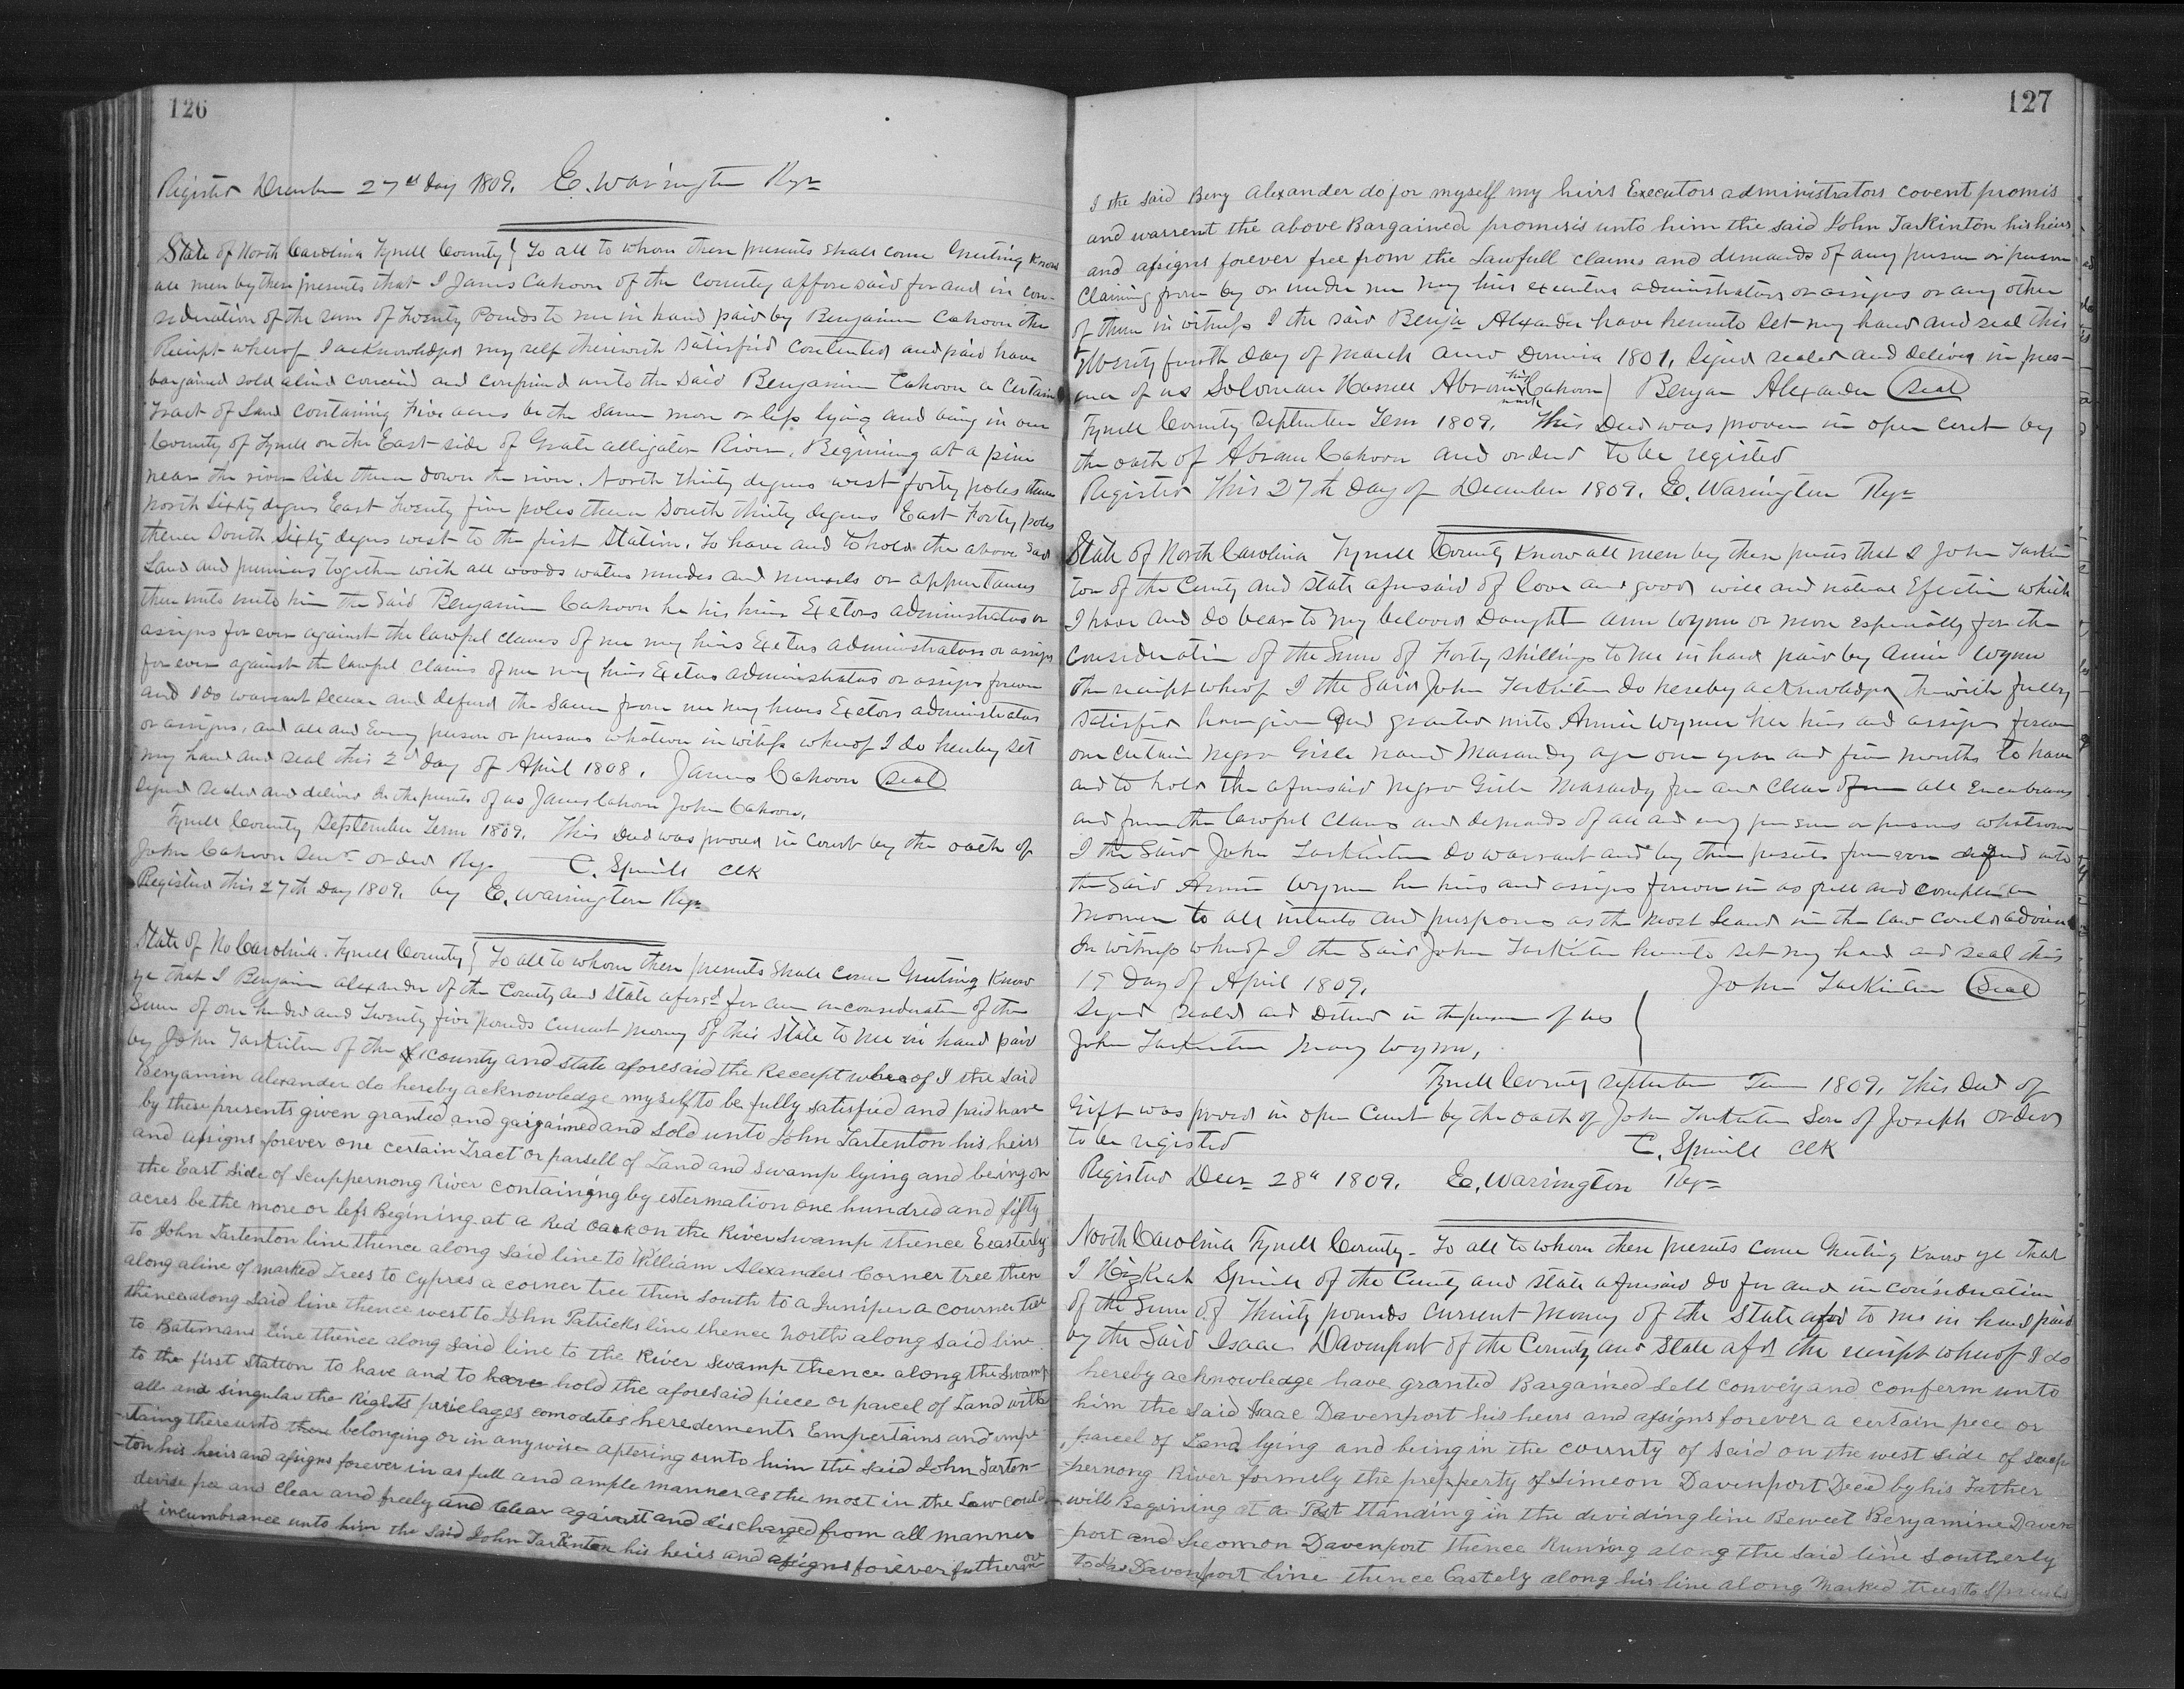 126
Register December 27th Day 1809. E. Warington Regr
State of North Carolina Tyrrell County } To all to whom these presents shall come Greeting Know
all men by these presents that I James Cahoon of the County afforesaid for and in con-
sideration of the sum of Twenty Pounds to me in hand paid by Benjamin Cahoon the
Receipt wherof I acknowledged my self theirwith satisfied contented and paid have
bargained sold alind conveid and confirmed unto the said Benjamin Cahoon a Certain
Tract of Land containing Five acres be the same more or less lying and being in our
County of Tyrrell on the East side of Grate alligator River. Begining at a pine
near the river side thence down the river. North thirty degrees west forty poles thence
North Sixty degrees East Twenty five poles thence South thirty degrees East Forty poles
thence South Sixty degres west to the first Station. To have and to hold the above said
Land and premises together with all woods waters mindes and minerals or appurtances
there unto unto him the said Benjamin Cahoon he his heirs Exetors administrators or
assigns for ever against the lawful claims of me my heirs Exetors administrators or assigns
for ever against the lawful claims of me my heirs Exetors administrators or assigns forever
and I do warrant secure and defend the same from me my heirs Exetors administrators
or assigns, and all and Every person or persons whatever in witness wherof I do hereby set
my hand and seal this 2d day of April 1808. James Cahoon (Seal)
Signed sealed and deliverd In the presents of us James Cahoon John Cahoon.
Tyrrell County September Term 1809. This Deed was proved in Court by the oath of
John Cahoon Senr. orderd Reg. C. Spruill Clk
Registered this 27th Day 1809. by E. Warrington Regr
State of No Carolina. Tyrrell County } To all to whom these presents shall come Greeting Know
ye that I Benjamin Alexander of the County and State aforsd for and in consideration of the
Sum of one hundred and Twenty five pounds Current money of this State to me in hand paid
by John Tarkinton of the County and State aforesaid the Receipt wheaof I the said
Benjamin alexander do hereby acknowledge myself to be fully satisfied and paid have
by these presents given granted and gargained and sold unto John Tartenton his heirs
and assigns forever one certain Tract or parsell of Land and swamp lying and being on
the East side of Scuppernong River containing by estermation one hundred and fifty
acres be the more or less Begining at a Red oack on the River Swamp thence Easterly
to John Tartenton line thence along said line to William Alexanders Corner tree then
along a line of marked Trees to Cypres a corner tree then south to a Juniper a courner tree
thence along said line thence west to John Patricks line thence North along said line
to Batemans line thence along said line to the River swamp thence along the swamp
to the first station to have and to have hold the aforesaid piece or parcel of Land with
all and singular the Rights privelages comodites heredements Empertains and impe-
-taing thereunto there belonging or in anywise aptering unto him the said John Tarton-
-ton his heirs and assigns forever in as full and ample manner as the most in the Law could
devise free and clear and freely and clear against and discharged from all manner
of incumbrance unto him the said John Tarkinton his heirs and assigns forever futher or
127
I the said Benj Alexander do for myself my heirs Executors administrators covent promis
and warrent the above Bargained promisis unto him the said John Tarkinton his heirs
and assigns forever free from the Lawfull claims and demands of any person or persons
Claiming from by or under me my heirs executors administrators or assigns or any other
of them in witness I the said Benja Alexander have hereunto set my hand and seal this
twenty fourth day of March anno Domina 1801. Signed sealed and deliverd in pres-
ence of us Soloman Hassell Abram his mark Cahoon } Benjan Alexander (Seal)
Tyrrell County September Term 1809. This Deed was proven in open cort by
the oath of Abram Cahoon and orderd to be registed
Registed This 27th Day of December 1809. E. Warington Regr
State of North Carolina Tyrrell County Know all men by these prests that I John Tarkin
ton of the County and State aforesaid of love and good will and natural Efection which
I have and do bear to my beloved Daught Ann Wynn or more especially for the
Consideration of the Sum of Forty shillings to me in hand paid by Annie Wynn
the receipt wherof I the Said John Tarkinten do hereby acknowledged therewith fully
satisfied have given and granted unto Annie Wynn her heirs and assigns forever
one certain negro Girle named Masandy age one year and five months to have
and to hold the aforesaid negro Girle Masandy free and Clear from all Encubrans
and from the lawful Claims and demands of all and any person or persons whatsoever
I the Said John Tarkinten do warrant and by these presents forever defend unto
the said Annie Wynn her heirs and assigns forever in as full and complete a
Manner to all intents and purposes as the most Leand in the law could advise
In witness wherof I the said John Tarkiten hereunto set my hand and seal this
19 Day of April 1809. John Tarkinten (Seal)
Signed Sealed and Deliverd in the presence of us
John Tarkinten Mary Wynn,
Tyrrell County September Term 1809. This Deed of
Gift was proved in open Court by the oath of John Tarkinten Son of Joseph orderd
to be registed C. Spruill Clk
Registed Decr 28th 1809. E. Warrington Regr
North Carolina Tyrrell County - To all to whom these presents come Greeting Know ye that
I Hizkiah Spruill of the County and state aforesaid do for and in consideration
of the Sum of Thirty pounds current money of the State afsd to me in hand paid
by the said Isaac Davenport of the County and State afsd the receipt wherof I do
hereby acknowledge have granted Bargained Sell convey and conferm unto
him the said Isaac Davenport his heirs and assigns forever a certain pece or
parcel of Land lying and being in the county of said on the west side of Scup-
-pernong River formely the prepperty of Simeon Davenport Decd by his Father
will Begining at a Post standing in the dividing line Beweet Benjamine Daven
port and Sheomon Davenport thence Running along the said line Southerly
to Davenport line thence Eastely along his line along Marked trees to Spruills